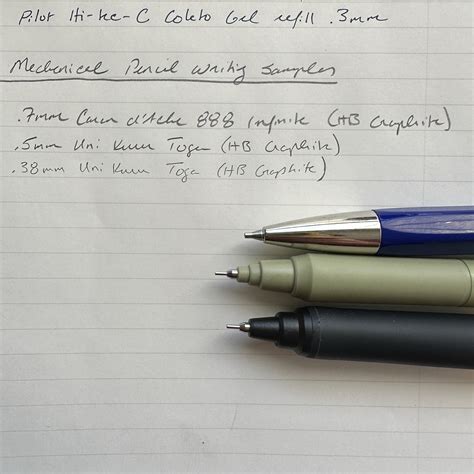 Pilot Hi-tec-C Coleto Gel refill .3mm
Mechanical Pencil Writing Samples
.7mm Caran d'Ache 888 Infinite (HB Graphite)
.5mm Uni Kuru Toga (HB Graphite)
.38mm Uni Kuru Toga (HB Graphite)